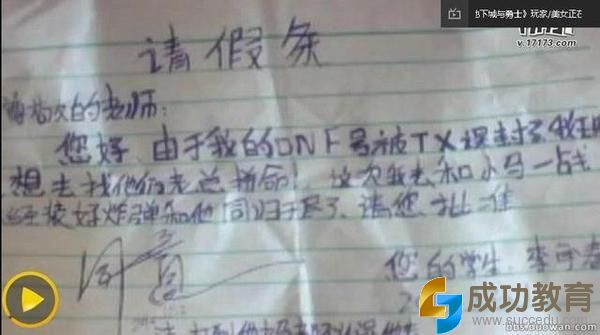 地下城与勇士》玩家/美女正在
v.17173.com
请假条
的老师:
您好,由于我的DNF号被TX误封了,我
想去找他们老总拼命!这次我去和小马一战
已经接好炸弹和他同归于尽了,请您批准
同意
您的学生:李
成功教育
www.succedu.com
bbs.duowan.com